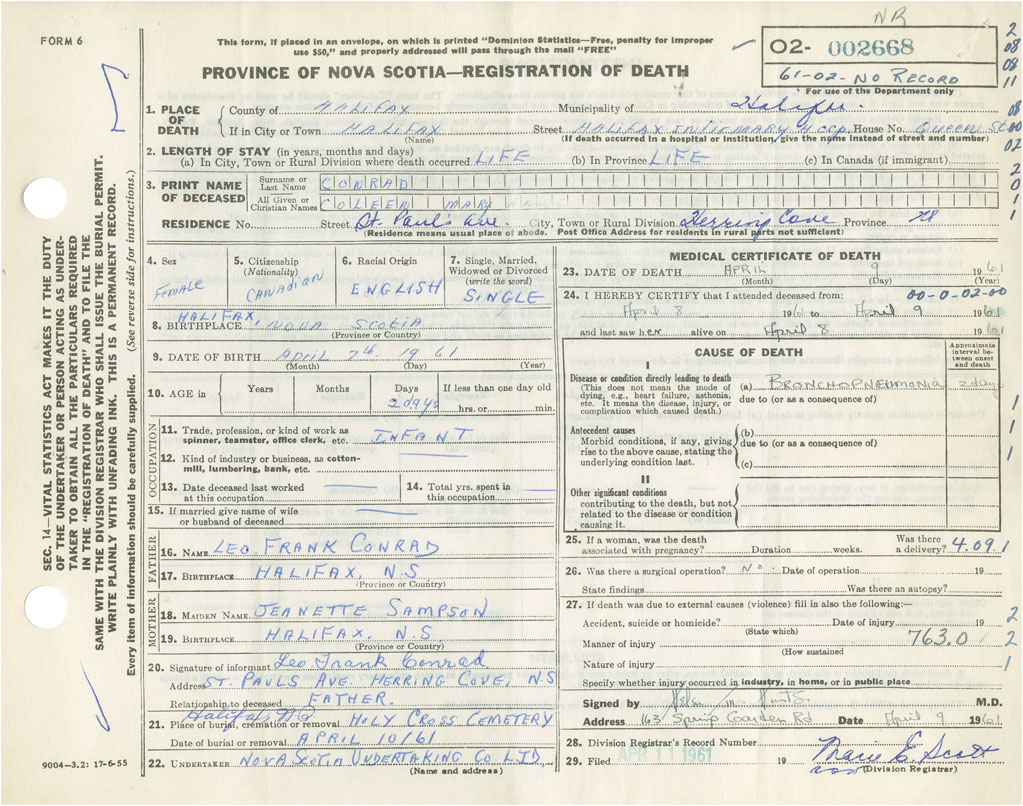 FORM 6
This form, if placed in an envelope, on which is printed "Dominion Statistics—Free, penalty for improper
use $50," and properly addressed will pass through the mail "FREE"
PROVINCE OF NOVA SCOTIA—REGISTRATION OF DEATH
NR
02- 002668
61-02-NO RECORD
For use of the Department only
2
08
08
11
08
00
02
2
0
1
1. PLACE OF DEATH
County of HALIFAX Municipality of Halifax
If in City or Town HALIFAX Street HALIFAX INFIRMARY House No. QUEEN St
(Name) (If death occurred in a hospital or institution, give the name instead of street and number)
2. LENGTH OF STAY (in years, months and days)
(a) In City, Town or Rural Division where death occurred LIFE (b) In Province LIFE (c) In Canada (if immigrant)
3. PRINT NAME OF DECEASED
Surname or Last Name CONRAD
All Given or Christian Names COLEEN MARY
RESIDENCE No. Street St. Paul's Ave. City, Town or Rural Division Herring Cove Province
(Residence means usual place of abode. Post Office Address for residents in rural parts not sufficient)
4. Sex
Female
5. Citizenship
(Nationality)
CANADIAN
6. Racial Origin
ENGLISH
7. Single, Married,
Widowed or Divorced
(write the word)
SINGLE
8. BIRTHPLACE HALIFAX, NOVA SCOTIA
(Province or Country)
9. DATE OF BIRTH April 7th 1961
(Month) (Day) (Year)
10. AGE in
Years
Months
Days
2 days
If less than one day old
hrs. or min.
OCCUPATION
11. Trade, profession, or kind of work as
spinner, teamster, office clerk, etc. INFANT
12. Kind of industry or business, as cotton-
mill, lumbering, bank, etc.
13. Date deceased last worked
at this occupation
14. Total yrs. spent in
this occupation
15. If married give name of wife
or husband of deceased
FATHER
16. NAME LEO. FRANK CONRAD
17. BIRTHPLACE HALIFAX, N.S
(Province or Country)
MOTHER
18. MAIDEN NAME JEANETTE SAMPSON
19. BIRTHPLACE HALIFAX, N.S
(Province or Country)
20. Signature of informant Leo Frank Conrad
Address ST. PAULS AVE. HERRING COVE, N.S
Relationship to deceased FATHER.
Halifax, N.S
21. Place of burial, cremation or removal HOLY CROSS CEMETERY
Date of burial or removal APRIL 10/61
22. UNDERTAKER NOVA SCOTIA UNDERTAKING CO LTD.
(Name and address)
MEDICAL CERTIFICATE OF DEATH
23. DATE OF DEATH APRIL 9 1961
(Month) (Day) (Year)
24. I HEREBY CERTIFY that I attended deceased from: 00-0-02-00
April 8 1961 to April 9 1961
and last saw her alive on April 8 1961
CAUSE OF DEATH
Approximate
interval be-
tween onset
and death
I
Disease or condition directly leading to death
(This does not mean the mode of
dying, e.g., heart failure, asthenia,
etc. It means the disease, injury, or
complication which caused death.)
(a) BRONCHOPNEUMONIA 2 days
due to (or as a consequence of)
Antecedent causes
Morbid conditions, if any, giving
rise to the above cause, stating the
underlying condition last.
(b)
due to (or as a consequence of)
(c)
1
1
1
II
Other significant conditions
contributing to the death, but not
related to the disease or condition
causing it.
25. If a woman, was the death
associated with pregnancy? Duration weeks. Was there
a delivery? 4.09.1
26. Was there a surgical operation? No Date of operation 19
State findings Was there an autopsy?
27. If death was due to external causes (violence) fill in also the following:—
Accident, suicide or homicide? Date of injury 19 2
(State which)
Manner of injury 763.0 2
(How sustained
Nature of injury 1
Specify whether injury occurred in industry, in home, or in public place
Signed by M.D.
Address 163 Spring Garden Rd Date April 9 1961
28. Division Registrar's Record Number
29. Filed APR 11 1961 19 Marie E. Scott
(Division Registrar)
SEC. 14—VITAL STATISTICS ACT MAKES IT THE DUTY
OF THE UNDERTAKER OR PERSON ACTING AS UNDER-
TAKER TO OBTAIN ALL THE PARTICULARS REQUIRED
IN THE "REGISTRATION OF DEATH" AND TO FILE THE
SAME WITH THE DIVISION REGISTRAR WHO SHALL ISSUE THE BURIAL PERMIT.
WRITE PLAINLY WITH UNFADING INK. THIS IS A PERMANENT RECORD.
Every item of information should be carefully supplied. (See reverse side for instructions.)
9004-3.2: 17-6-55